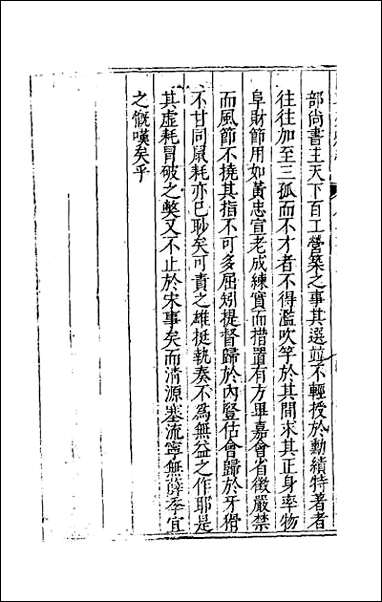 部尚書主天下百工營築之事其選並不輕授於勳績特著者
往往加至三孤而不才者不得濫吹竽於其間求其正身率物
阜財節用如黃忠宣老成練實而措置有方畢嘉會省徵嚴禁
而風節不撓其指不可多屈矧提督歸於內豎估會歸於牙猾
不甘同鼠耗亦已眇矣可責之雄挺執奏不為無益之作耶是
其虛耗冒破之獘又不止於宋事矣而清源塞流寧無薛季宜
之慨嘆矣乎